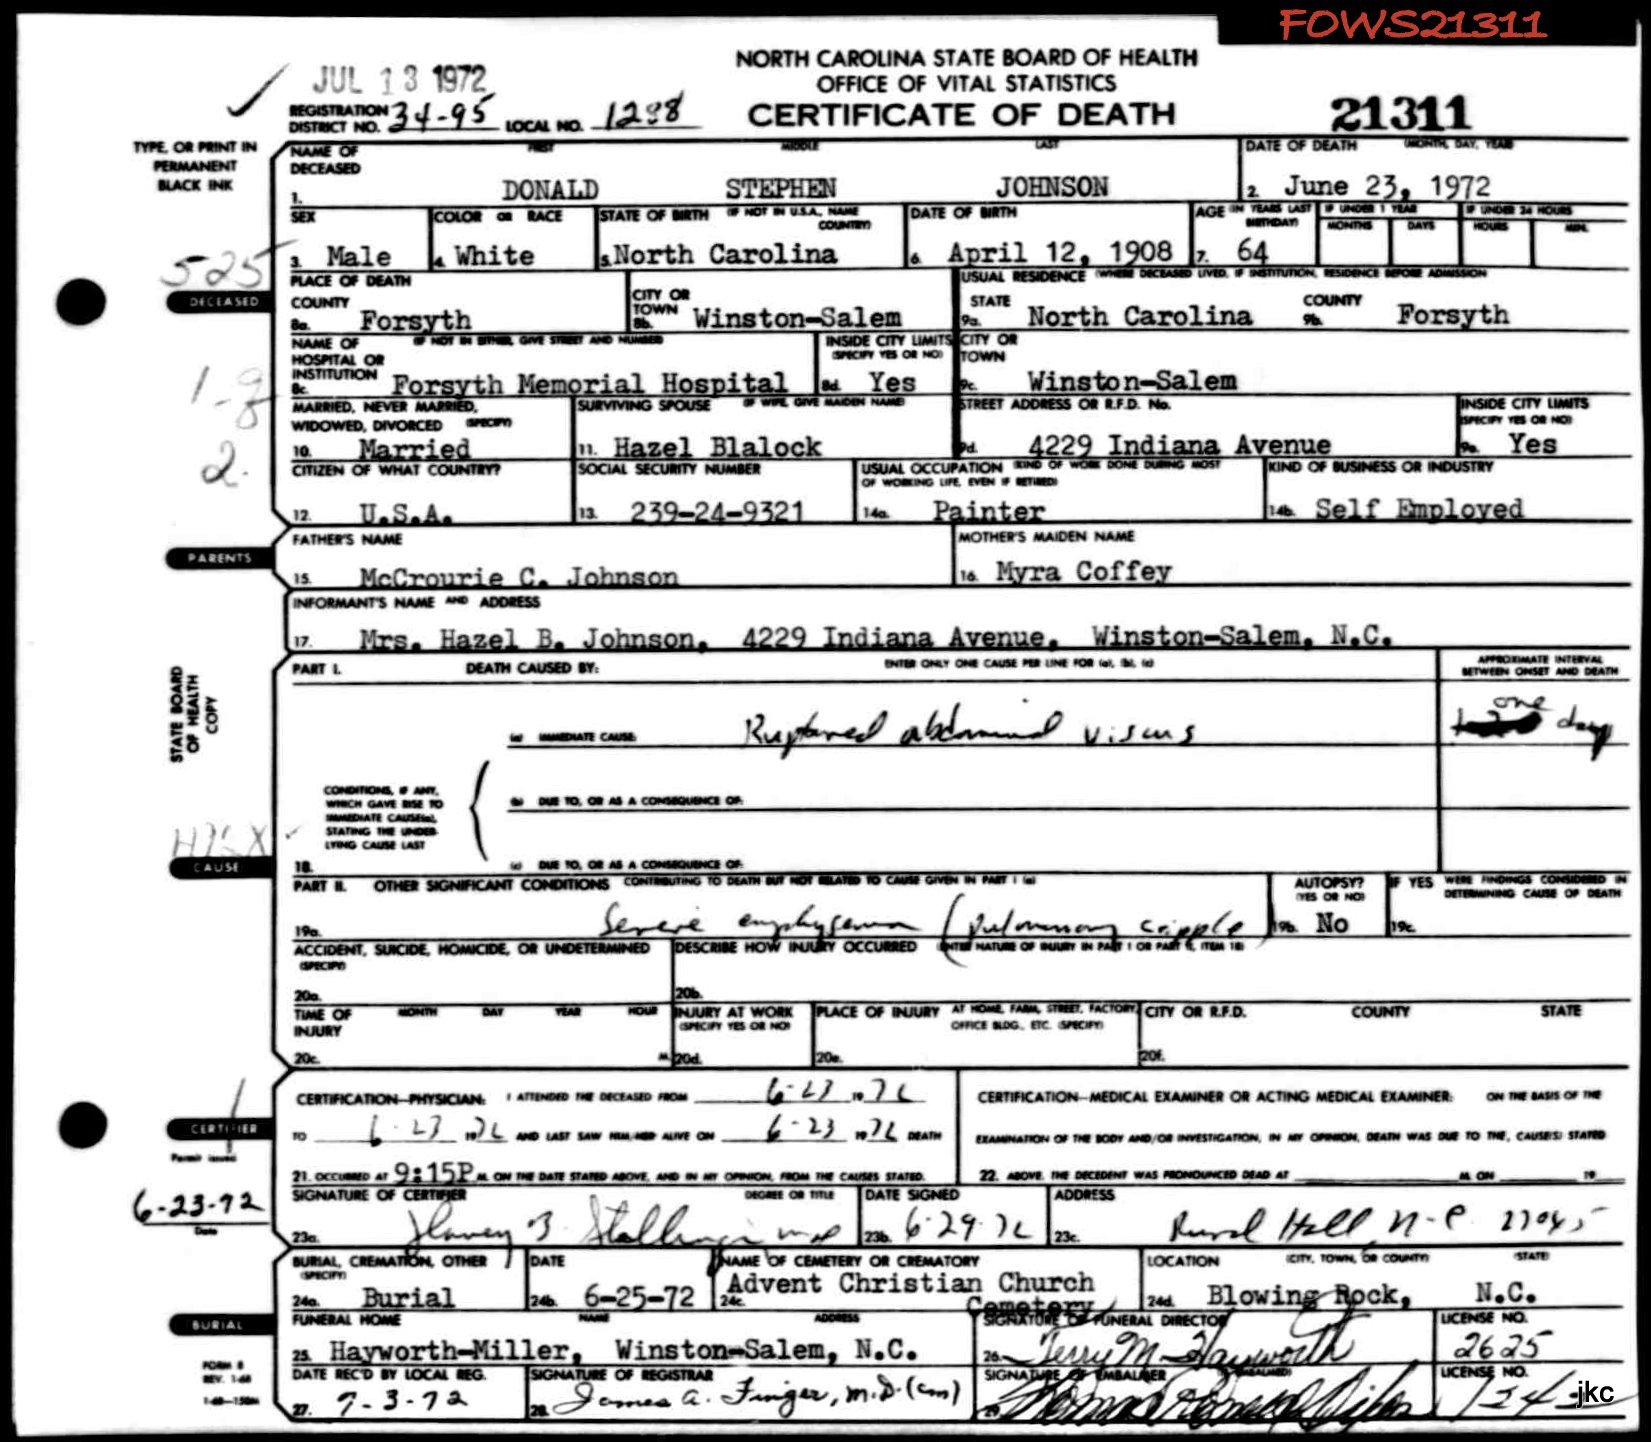 FOWS21311
NORTH CAROLINA STATE BOARD OF HEALTH
OFFICE OF VITAL STATISTICS
CERTIFICATE OF DEATH
21311
JUL 13 1972
REGISTRATION DISTRICT NO. 34-95 LOCAL NO. 1288
TYPE, OR PRINT IN
PERMANENT
BLACK INK
NAME OF DECEASED FIRST MIDDLE LAST DATE OF DEATH (MONTH, DAY, YEAR)
1. DONALD STEPHEN JOHNSON 2. June 23, 1972
SEX COLOR OR RACE STATE OF BIRTH (IF NOT IN U.S.A., NAME COUNTRY) DATE OF BIRTH AGE (IN YEARS LAST BIRTHDAY) IF UNDER 1 YEAR MONTHS DAYS IF UNDER 24 HOURS HOURS MIN.
3. Male 4. White 5. North Carolina 6. April 12, 1908 7. 64
525
DECEASED
PLACE OF DEATH USUAL RESIDENCE (WHERE DECEASED LIVED, IF INSTITUTION, RESIDENCE BEFORE ADMISSION
COUNTY CITY OR TOWN STATE COUNTY
8a. Forsyth 8b. Winston-Salem 9a. North Carolina 9b. Forsyth
NAME OF HOSPITAL OR INSTITUTION (IF NOT IN EITHER, GIVE STREET AND NUMBER) INSIDE CITY LIMITS (SPECIFY YES OR NO) CITY OR TOWN
8c. Forsyth Memorial Hospital 8d. Yes 9c. Winston-Salem
MARRIED, NEVER MARRIED, WIDOWED, DIVORCED (SPECIFY) SURVIVING SPOUSE (IF WIFE, GIVE MAIDEN NAME) STREET ADDRESS OR R.F.D. No. INSIDE CITY LIMITS (SPECIFY YES OR NO)
10. Married 11. Hazel Blalock 9d. 4229 Indiana Avenue 9e. Yes
2.
CITIZEN OF WHAT COUNTRY? SOCIAL SECURITY NUMBER USUAL OCCUPATION (KIND OF WORK DONE DURING MOST OF WORKING LIFE, EVEN IF RETIRED) KIND OF BUSINESS OR INDUSTRY
12. U.S.A. 13. 239-24-9321 14a. Painter 14b. Self Employed
PARENTS
FATHER'S NAME MOTHER'S MAIDEN NAME
15. McCrourie C. Johnson 16. Myra Coffey
INFORMANT'S NAME AND ADDRESS
17. Mrs. Hazel B. Johnson, 4229 Indiana Avenue, Winston-Salem, N.C.
STATE BOARD
OF HEALTH
COPY
PART I. DEATH CAUSED BY: ENTER ONLY ONE CAUSE PER LINE FOR (a), (b), (c) APPROXIMATE INTERVAL BETWEEN ONSET AND DEATH
(a) IMMEDIATE CAUSE: Ruptured abdominal viscus one day
CONDITIONS, IF ANY,
WHICH GAVE RISE TO
IMMEDIATE CAUSE(a),
STATING THE UNDER-
LYING CAUSE LAST
(b) DUE TO, OR AS A CONSEQUENCE OF:
CAUSE
18. (c) DUE TO, OR AS A CONSEQUENCE OF:
PART II. OTHER SIGNIFICANT CONDITIONS CONTRIBUTING TO DEATH BUT NOT RELATED TO CAUSE GIVEN IN PART I (a) AUTOPSY? (YES OR NO) IF YES WERE FINDINGS CONSIDERED IN DETERMINING CAUSE OF DEATH
19a. Severe emphysema (Pulmonary cripple 19b. No 19c.
ACCIDENT, SUICIDE, HOMICIDE, OR UNDETERMINED (SPECIFY) DESCRIBE HOW INJURY OCCURRED (ENTER NATURE OF INJURY IN PART I OR PART II, ITEM 18)
20a. 20b.
TIME OF INJURY MONTH DAY YEAR HOUR INJURY AT WORK (SPECIFY YES OR NO) PLACE OF INJURY AT HOME, FARM, STREET, FACTORY, OFFICE BLDG., ETC. (SPECIFY) CITY OR R.F.D. COUNTY STATE
20c. M. 20d. 20e. 20f.
CERTIFICATION—PHYSICIAN: I ATTENDED THE DECEASED FROM 6-23 1972
TO 6-23 1972 AND LAST SAW HIM/HER ALIVE ON 6-23 1972 DEATH
21. OCCURRED AT 9:15P M. ON THE DATE STATED ABOVE, AND IN MY OPINION, FROM THE CAUSES STATED.
CERTIFICATION—MEDICAL EXAMINER OR ACTING MEDICAL EXAMINER: ON THE BASIS OF THE
EXAMINATION OF THE BODY AND/OR INVESTIGATION, IN MY OPINION, DEATH WAS DUE TO THE, CAUSE(S) STATED
22. ABOVE. THE DECEDENT WAS PRONOUNCED DEAD AT M. ON 19
CERTIFIER
Permit issued
6-23-72
Date
SIGNATURE OF CERTIFIER DEGREE OR TITLE DATE SIGNED ADDRESS
23a. Harvey B. Stallings MD 23b. 6-29-72 23c. Rural Hall, N.C. 27045
BURIAL, CREMATION, OTHER (SPECIFY) DATE NAME OF CEMETERY OR CREMATORY LOCATION (CITY, TOWN, OR COUNTY) (STATE)
24a. Burial 24b. 6-25-72 24c. Advent Christian Church Cemetery 24d. Blowing Rock, N.C.
BURIAL
FUNERAL HOME NAME ADDRESS SIGNATURE OF FUNERAL DIRECTOR LICENSE NO.
25. Hayworth-Miller, Winston-Salem, N.C. 26. Terry M. Hayworth 2625
FORM 8
REV. 1-68
1-68—150M
DATE REC'D BY LOCAL REG. SIGNATURE OF REGISTRAR SIGNATURE OF EMBALMER LICENSE NO.
27. 7-3-72 28. James A. Finger, M.D. (cm) 29.
jkc